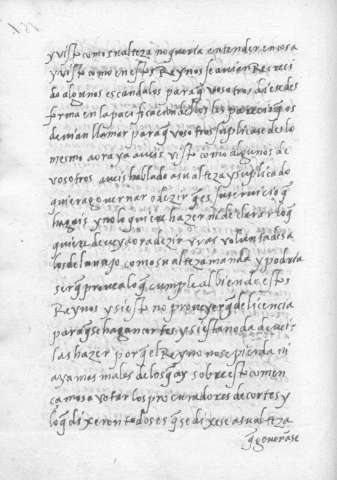 y visto como su alteza no queria entender en cosa
y visto como en estos Reynos se avian Recreci
do algunos escandalos para q vosotros diesedes
forma en la pacificacion dellos les parecio q os
devian llamar para q vosotros suplicasedes lo
mesmo aora ya aveis visto como algunos de
vosotros aveis hablado a su alteza y suplicado
quiera governar o dezir q es su servicio q
hagais y no lo quiere hazer ni declarar lo q
quiere de cuya ora dezir y vras voluntades a
los de llanajo como su alteza manda y podria
ser q provea lo q cumple al bien de estos
Reynos y si esto no proveyere q de licencia
para q se hagan artes y si esta no da deveis
las hazer por q el Reyno no se pierda ni
ayamos males de los q ay sobre esto comen
camos a votar los procuradores de cortes y
lo q dixeron todos es q se dixese a su alteza
q governase